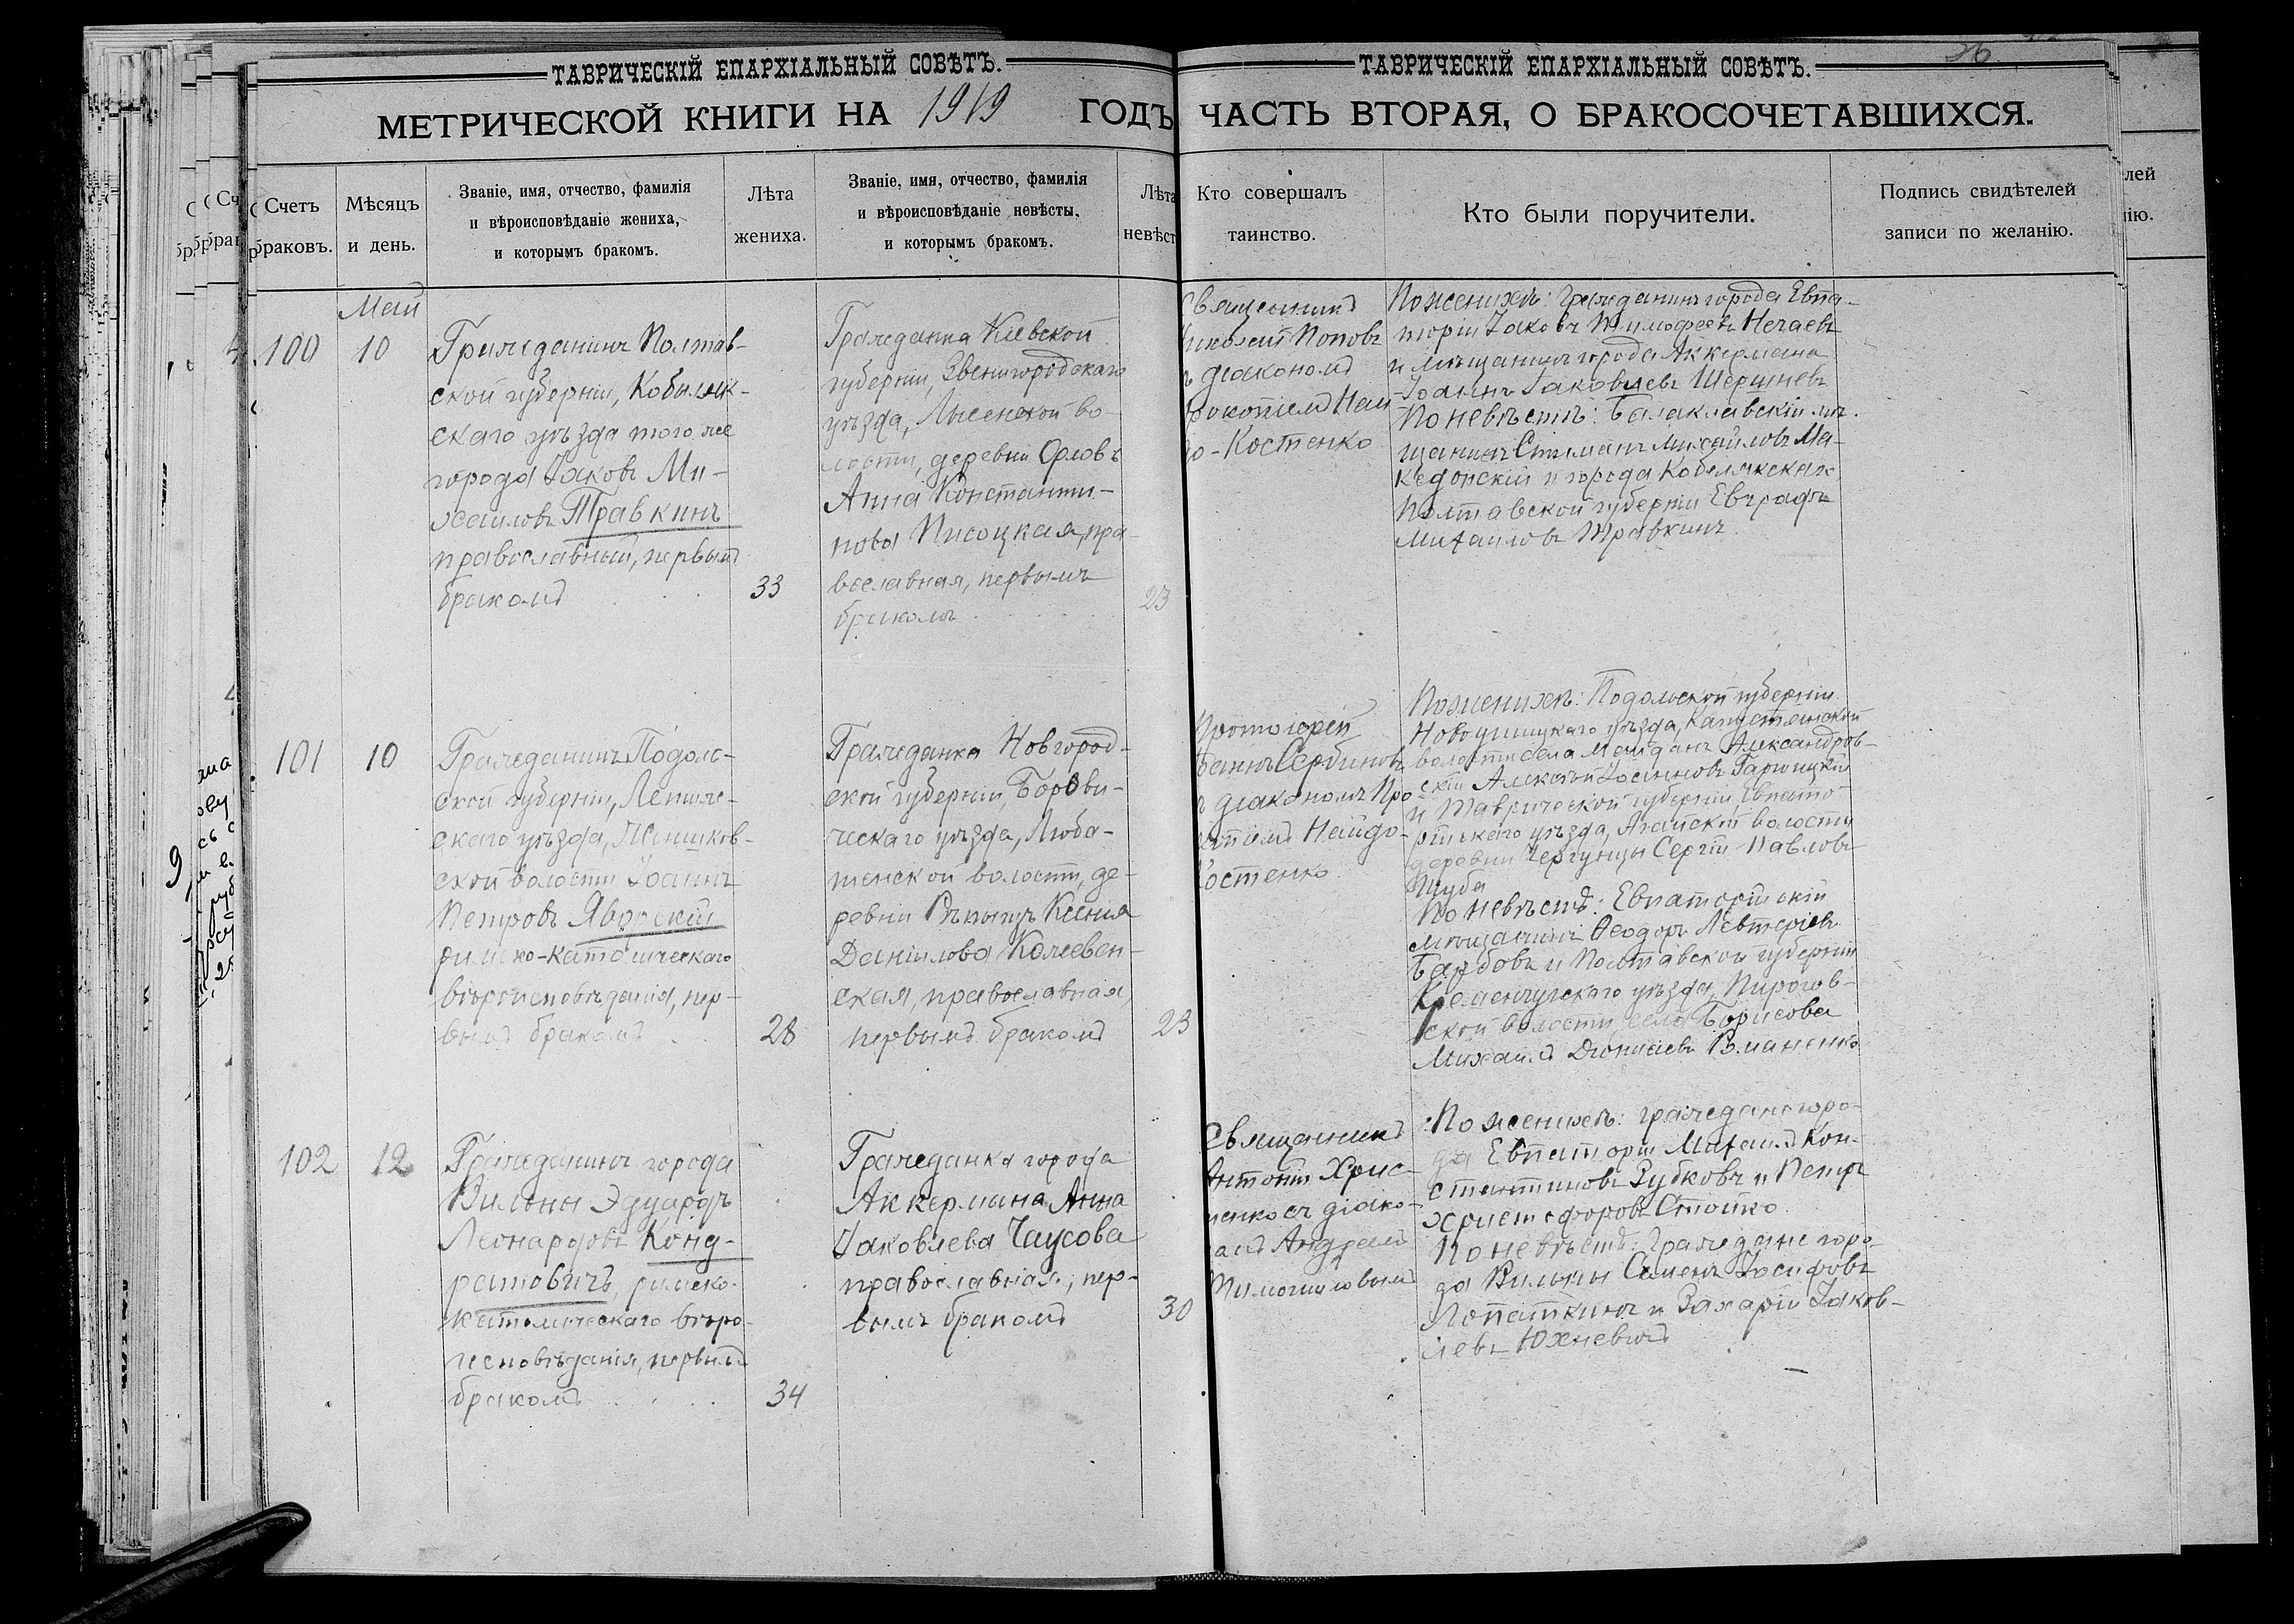 ТАВРИЧЕСКІЙ ЕПАРХІАЛЬНЫЙ СОВѢТЪ.
МЕТРИЧЕСКОЙ КНИГИ НА 1919 ГОДЪ
Счетъ браковъ.
Мѣсяцъ и день.
Званіе, имя, отчество, фамилія
и вѣроисповѣданіе жениха,
и которымъ бракомъ.
Лѣта
жениха.
Званіе, имя, отчество, фамилія
и вѣроисповѣданіе невѣсты,
и которымъ бракомъ.
Лѣта
невѣст
ТАВРИЧЕСКІЙ ЕПАРХІАЛЬНЫЙ СОВѢТЪ.
36
ЧАСТЬ ВТОРАЯ, О БРАКОСОЧЕТАВШИХСЯ.
Кто совершалъ
таинство.
Кто были поручители.
Подпись свидѣтелей
записи по желанію.
Май
100
10
Гражданинъ Полтав-
ской губерніи, Кобыляк-
скаго уѣзда того же
города Іаковъ Ми-
хаиловъ Травкинъ
православный, первымъ
бракомъ
33
Гражданка Кіевской
губерніи, Звенигородскаго
уѣзда, Лысенской во-
лости, деревни Орловъ
Анна Константи-
нова Писоцкая, пра-
вославная, первымъ
бракомъ
23
Священникъ
Николай Поповъ
ъ діакономъ
рокопіемъ Най
до-Костенко
По женихѣ: Гражданинъ города Евпа-
торіи Іаковъ Тимофеевъ Нечаевъ
и мѣщанинъ города Аккермана
Іоаннъ Іаковлевъ Шершневъ
По невѣстѣ: Балаклавскій мѣ-
щанинъ Стиманъ Михайловъ Ма-
кедонскій и города Кобелякскаго
Полтавской губерніи Евграфъ
Михаиловъ Травкинъ
101
10
Гражданинъ Подоль-
ской губерніи,
скаго уѣзда,
ской волости Іоаннъ
Петровъ Яворскій
римско-католическаго
вѣроисповѣданія, пер-
вымъ бракомъ
28
Гражданка Новгород-
ской губерніи, Борови-
ческаго уѣзда, Люба-
тенской волости, де-
ревни Рѣпищъ Ксенія
Даніилова Колевен-
ская, православная,
первымъ бракомъ
23
Протоіерей
Іоаннъ Сербиновъ
ъ діакономъ Про
копіемъ Найдо-
Костенко
По женихѣ: Подольской губерніи
Новоушицкаго уѣзда, Капустянской
волости села Майданъ Александров-
скій Алексѣй Іоанновъ
и Таврической губерніи, Евпато-
рійскаго уѣзда, Агайской волости
деревни Чергунцы Сергій Павловъ
Шуба
По невѣстѣ: Евпаторійскій
мѣщанинъ Ѳеодоръ Левтеріевъ
Барбовъ и Полтавской губерніи
Кременчугскаго уѣзда, Пирогов-
ской волости, села Борисова
Михаилъ Діонисіевъ Романенко
102
12
Гражданинъ города
Вильны Эдуардъ
Леонардовъ Конд-
ратовичъ, римско-
католическаго вѣро-
исповѣданія, первымъ
бракомъ
34
Гражданка города
Аккермана Анна
Іаковлева Чаусова
православная, пер-
вымъ бракомъ
30
Священникъ
Антоній Хрис-
енко съ діако-
омъ Андреемъ
Тимошиловымъ
По женихѣ: граждане горо-
да Евпаторіи Михаилъ Кон-
стантиновъ Зубковъ и Петръ
Христофоровъ Стойко
По невѣстѣ: Граждане горо-
да Вильны Семенъ Іосифовъ
Лопаткинъ и Захарій Іаков-
левъ Юхневичъ